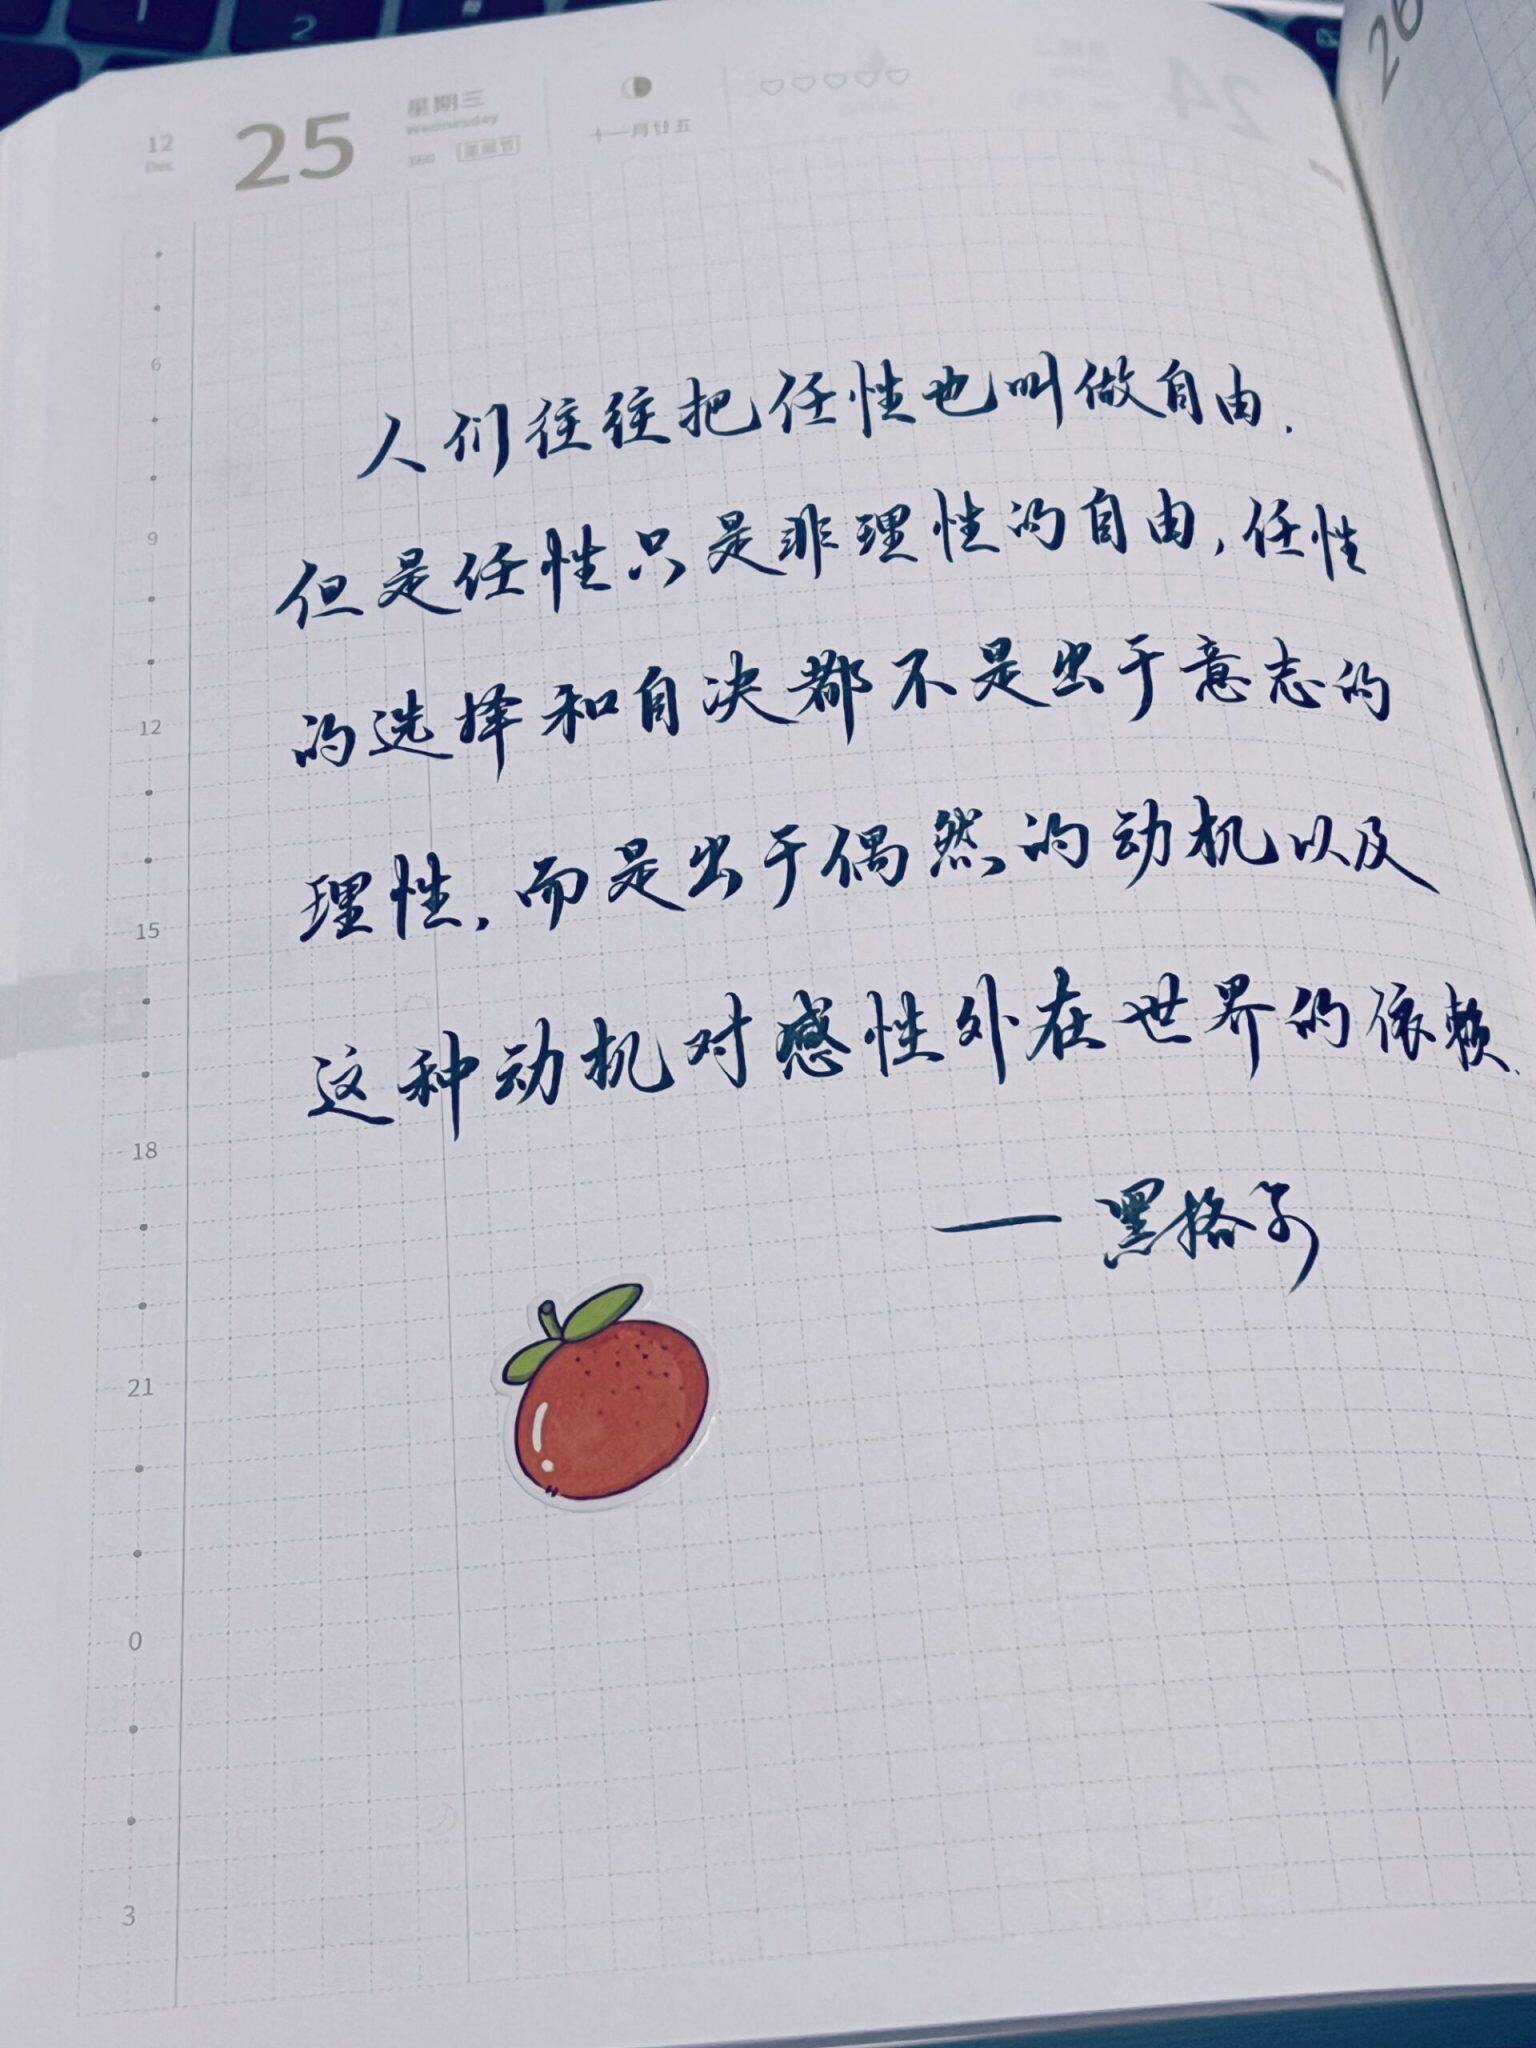 12
Dec
25
星期三
Wednesday
360
圣诞节
十一月廿五
24
26
6
9
12
15
18
21
0
3
人们往往把任性也叫做自由.
但是任性只是非理性的自由,任性
的选择和自决都不是出于意志的
理性,而是出于偶然的动机以及
这种动机对感性外在世界的依赖.
— 黑格尔